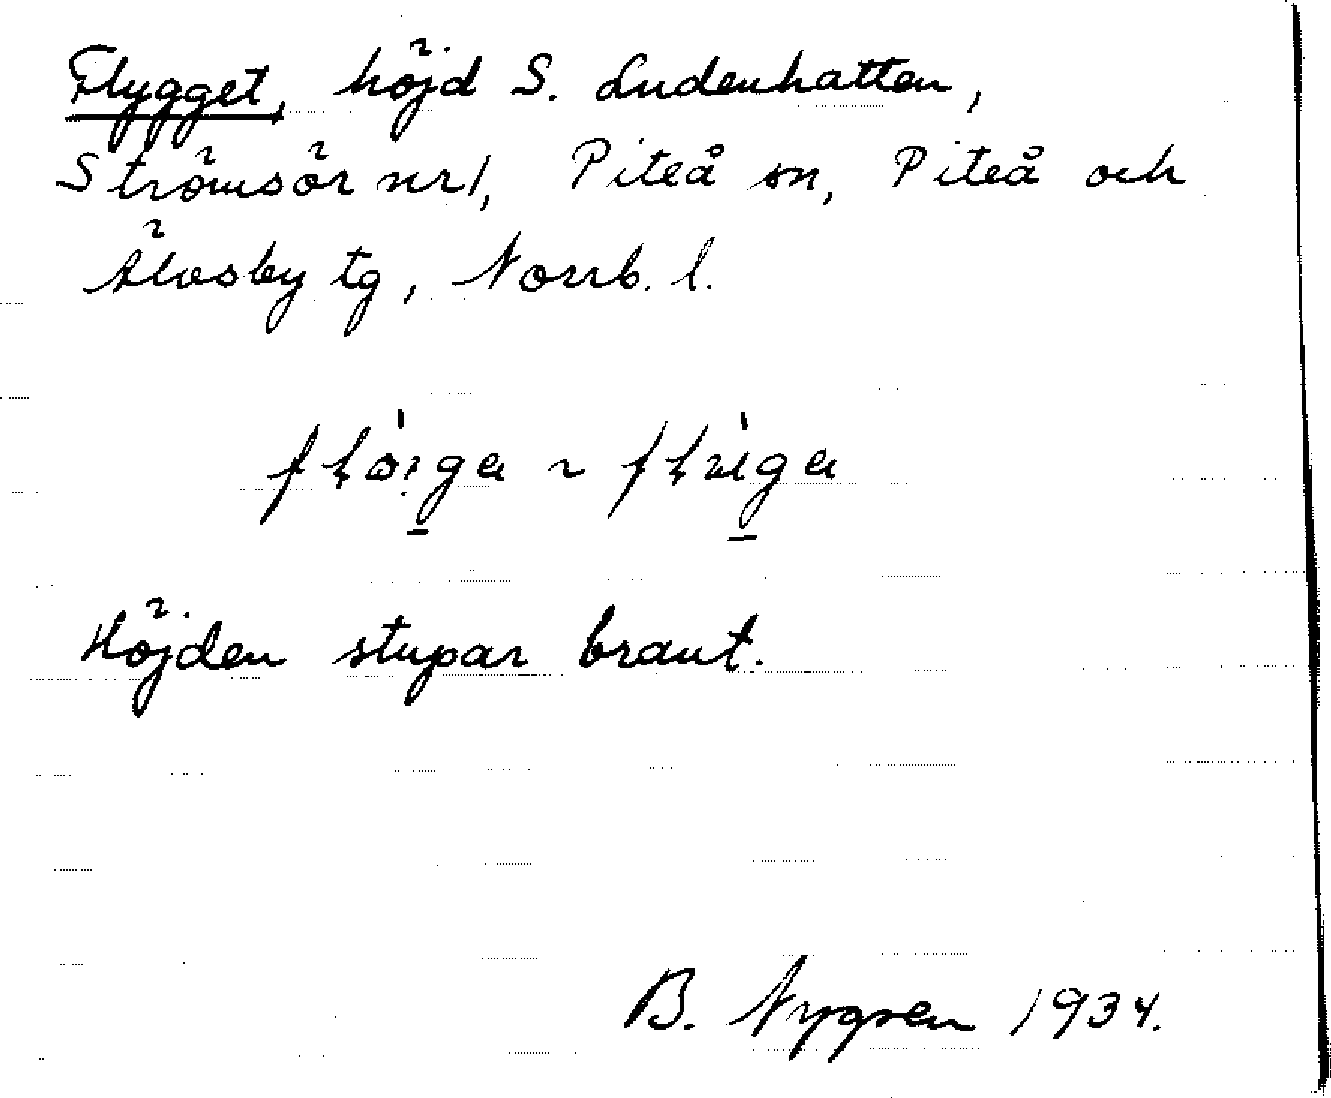 Flygget, höjd S. Ludenhatten,
Strömsör nr 1, Piteå sn, Piteå och
Älvsby tg, Norrb. l.
Höjden stupar brant.
B. Nygren 1934.